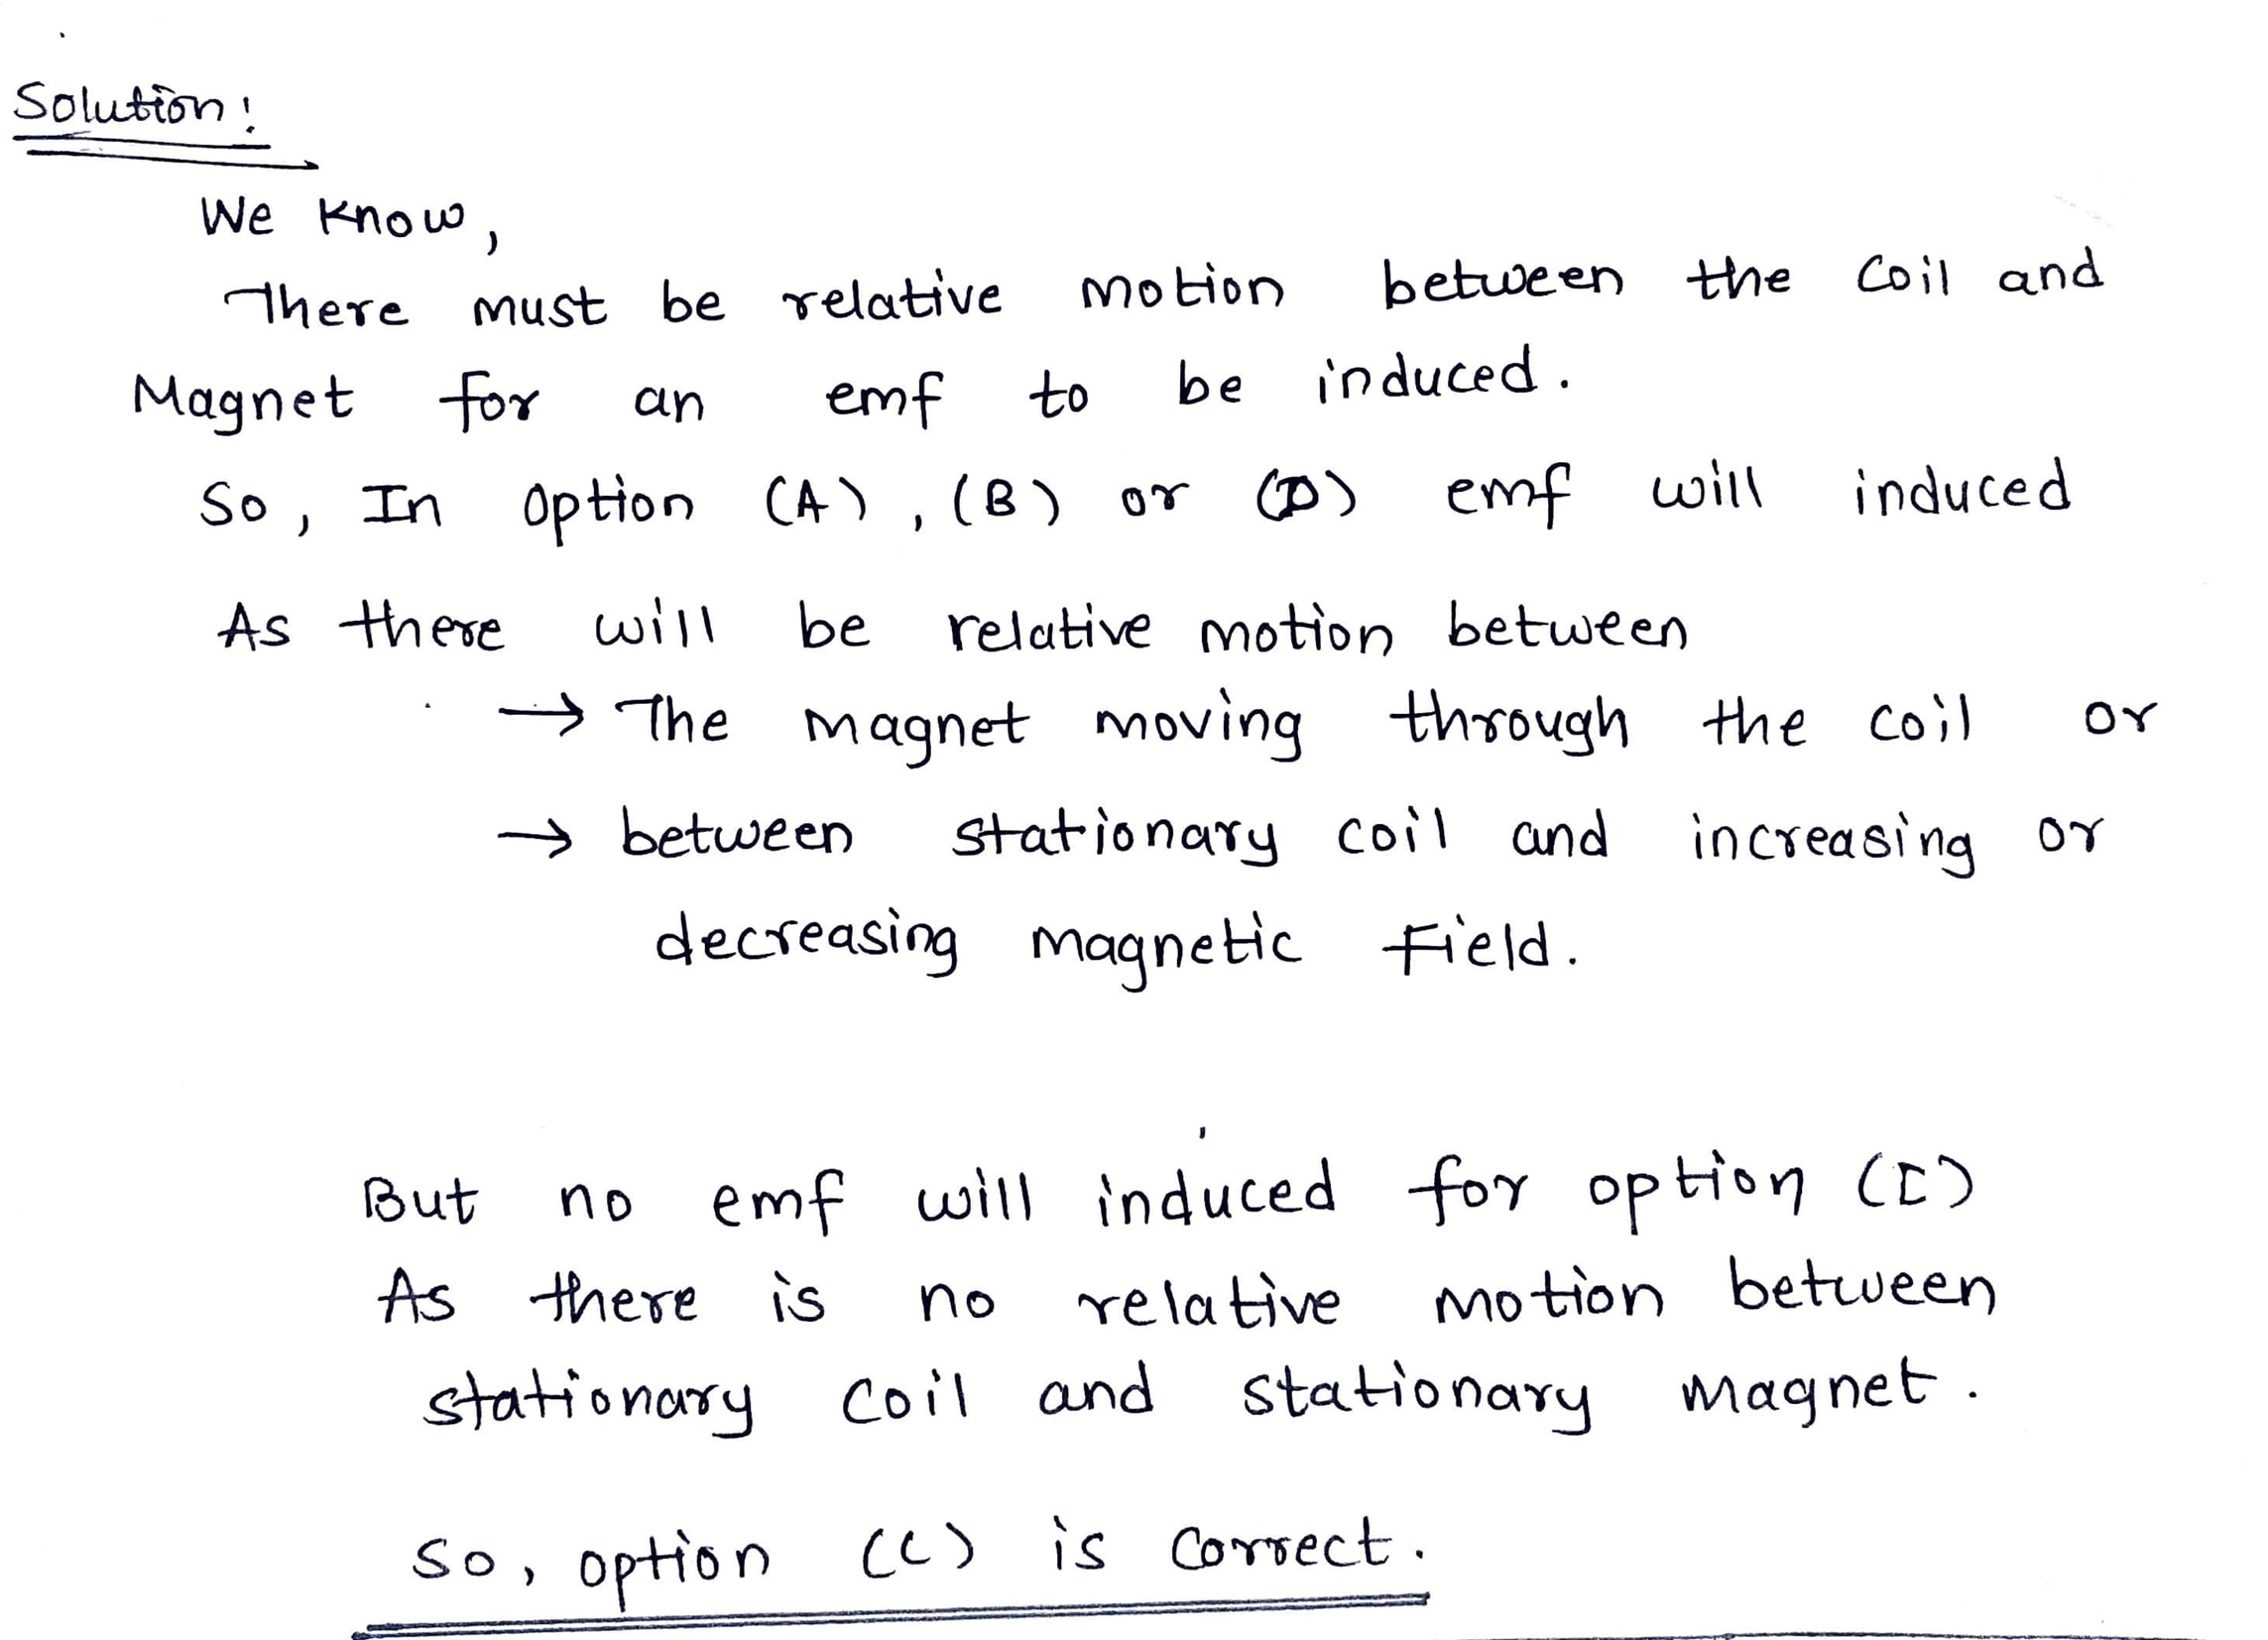 Solution:
We know,
There must be relative motion between the coil and
Magnet for an emf to be induced.
So, In option (A), (B) or (D) emf will induced
As there will be relative motion between
→ The magnet moving through the coil or
→ between stationary coil and increasing or
decreasing magnetic field.
But no emf will induced for option (C)
As there is no relative motion between
stationary coil and stationary magnet.
So, option (C) is correct.